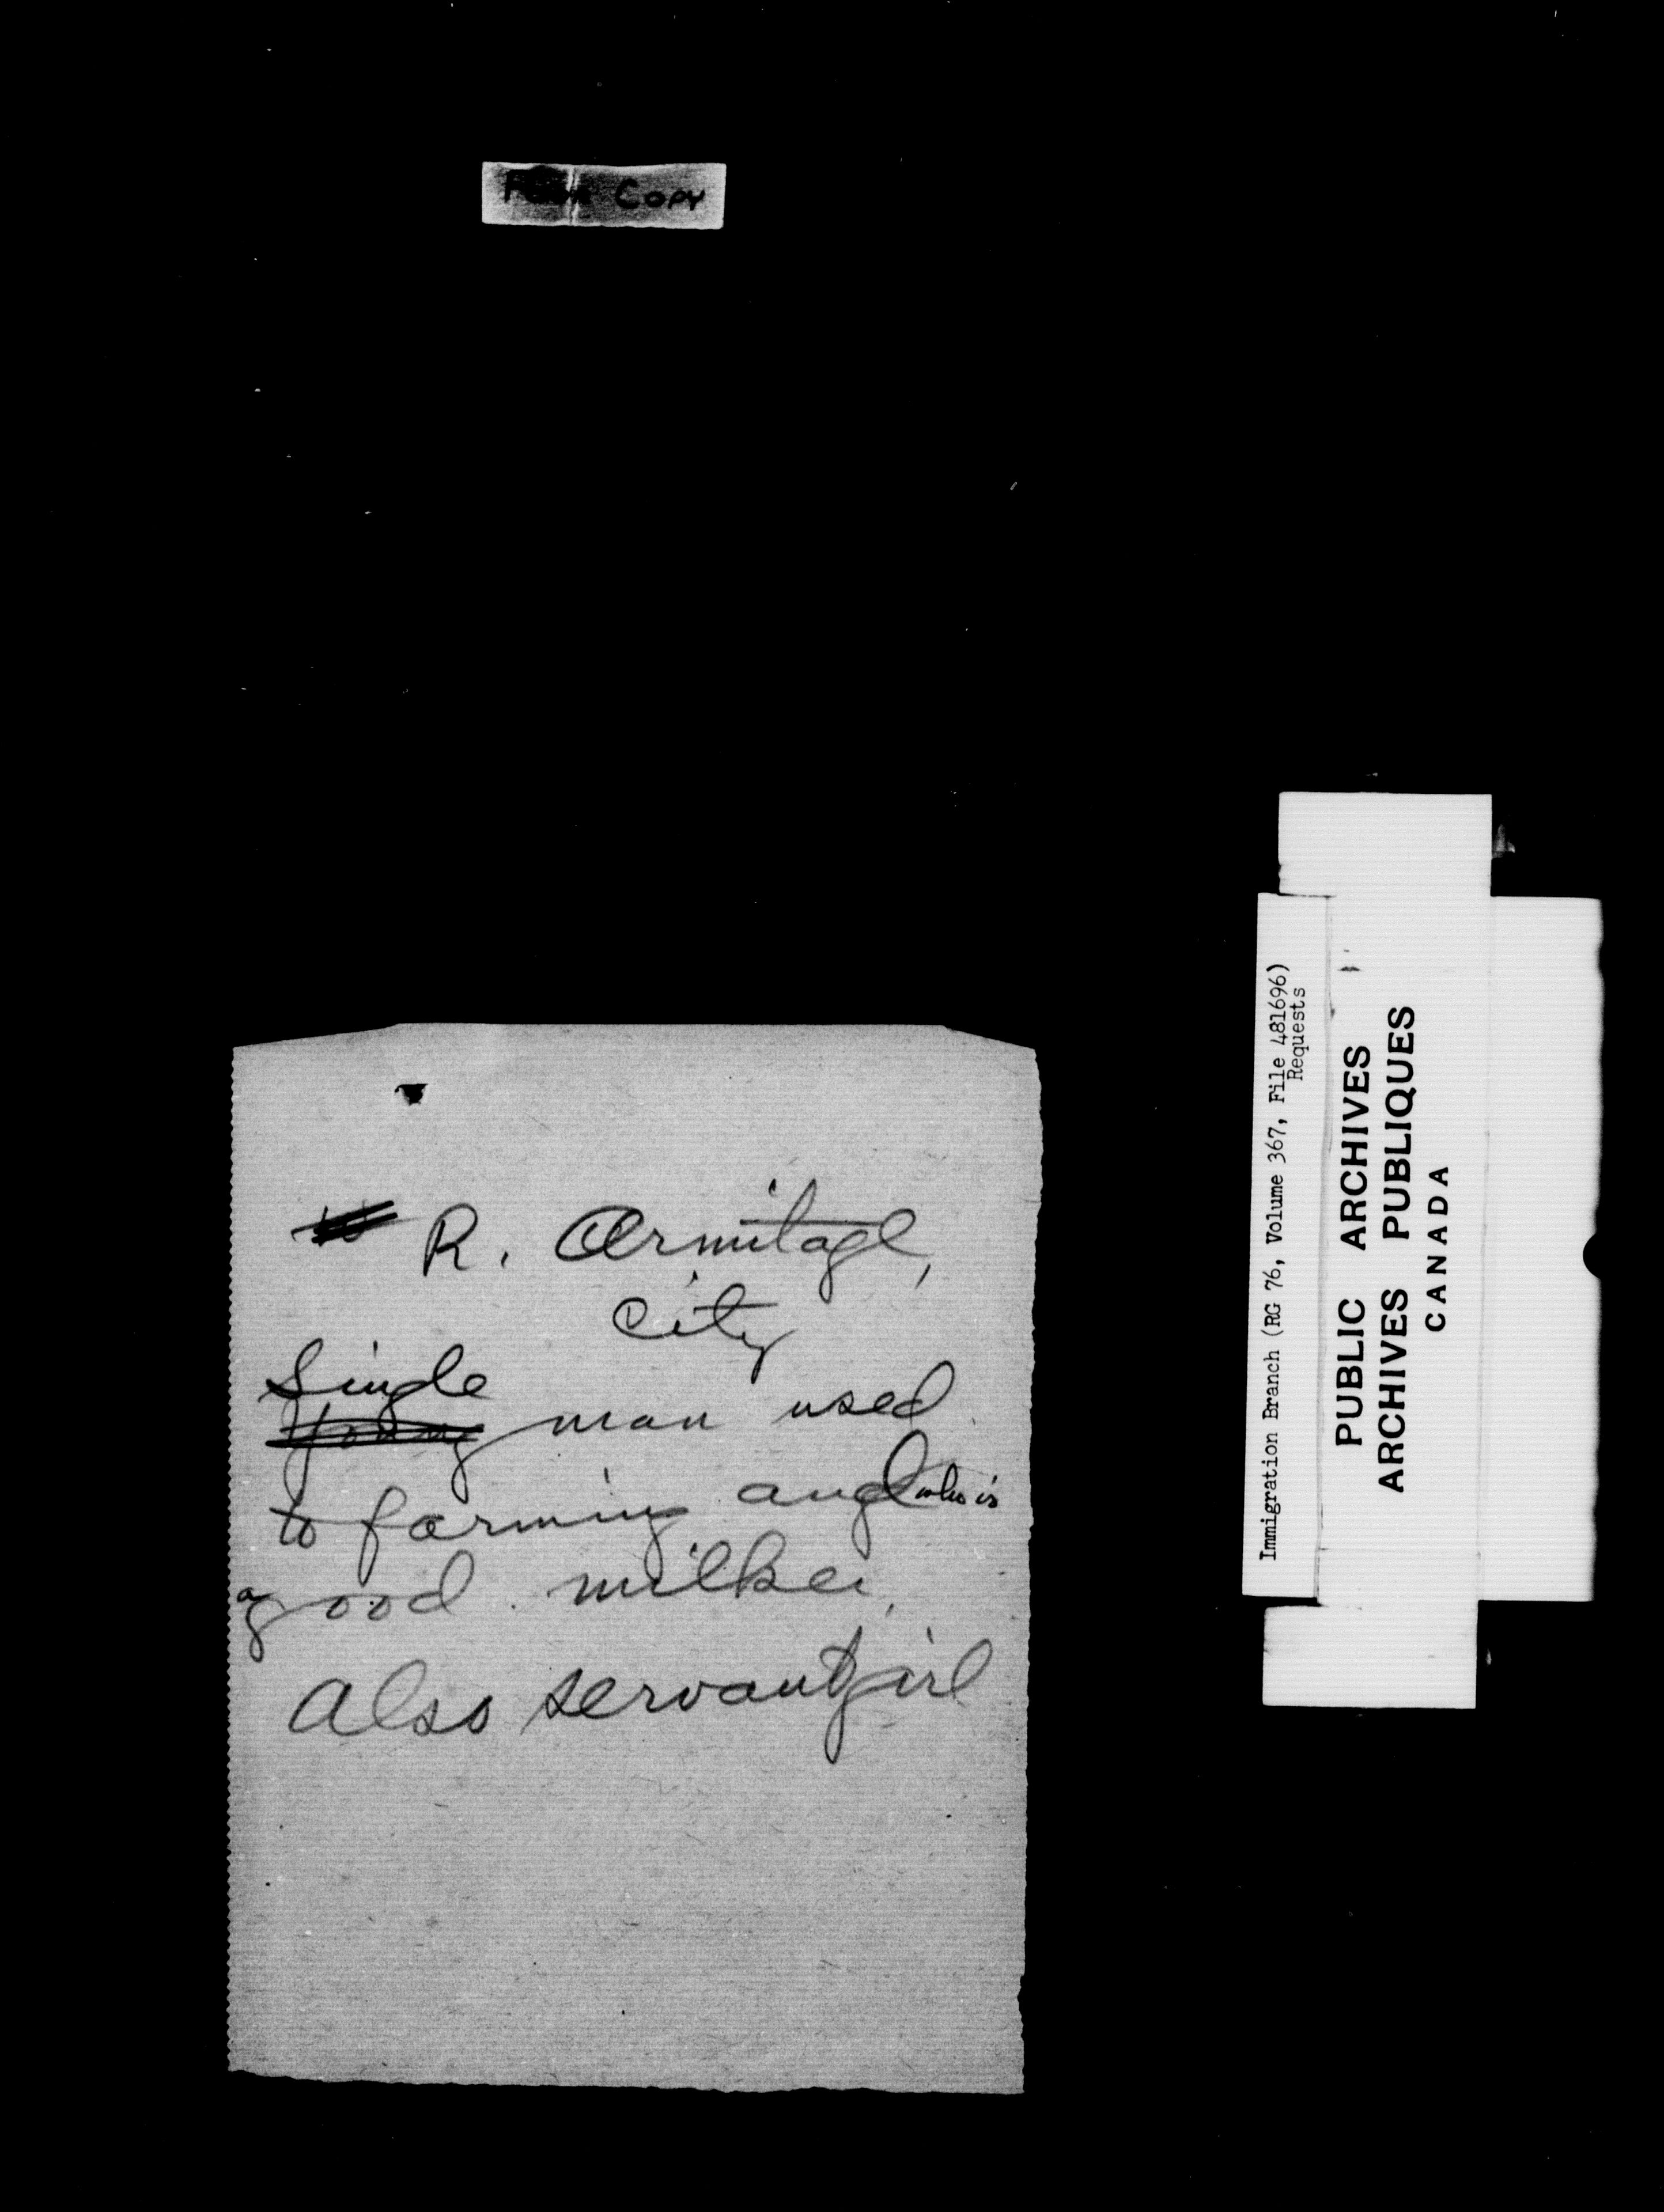 Copy
R. Armitage,
City
Single
young man used
to farming and who is
a good milker,
also servant girl
Immigration Branch (RG 76, Volume 367, File 481696)
Requests
PUBLIC ARCHIVES
ARCHIVES PUBLIQUES
CANADA